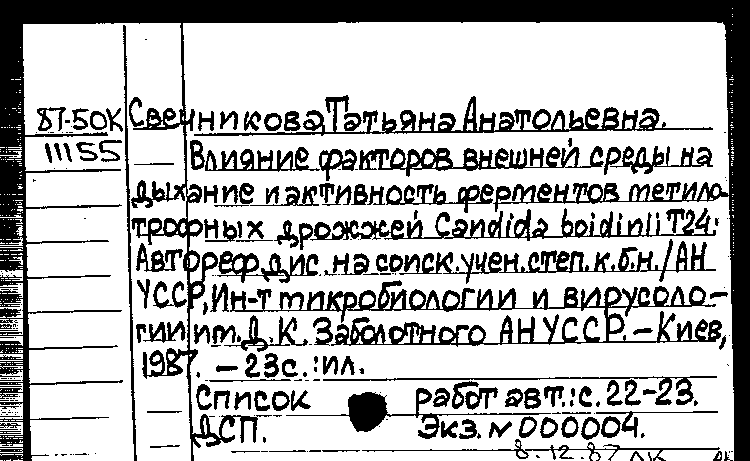 87-50К Свечникова, Татьяна Анатольевна.
11155 — Влияние факторов внешней среды на
дыхание и активность ферментов метило-
трофных дрожжей Candida boidinii Т24:
Автореф. дис. на соиск. учен. степ. к.б.н. / АН
УССР, Ин-т микробиологии и вирусоло-
гии им. Д.К. Заболотного АН УССР. – Киев,
1987. – 23с.: ил.
Список работ авт.: с. 22-23.
ДСП. Экз. № 000004.
8.12.87